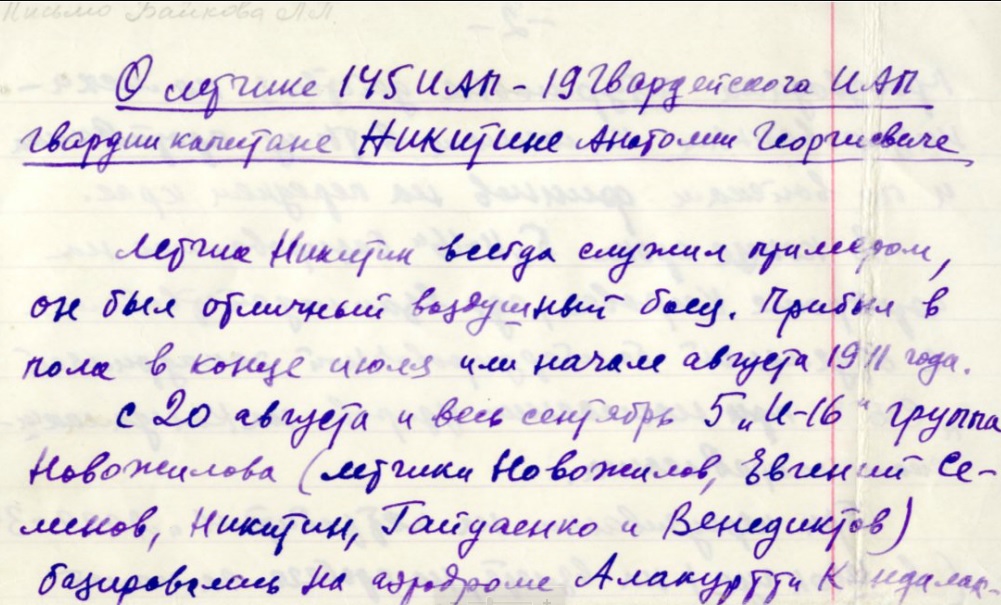 Письмо Байкова Л.Л.
-2-
О летчике 145 ИАП - 19 Гвардейского ИАП
гвардии капитане Никитине Анатолии Георгиевиче
Летчик Никитин всегда служил примером,
он был отличный воздушный боец. Прибыл в
полк в конце июля или начале августа 1941 года.
С 20 августа и весь сентябрь 5 „И-16" группа
Новожилова (летчики Новожилов, Евгений Се-
менов, Никитин, Гайдаенко и Венедиктов)
базировались на аэродроме Алакуртти Кандалак-